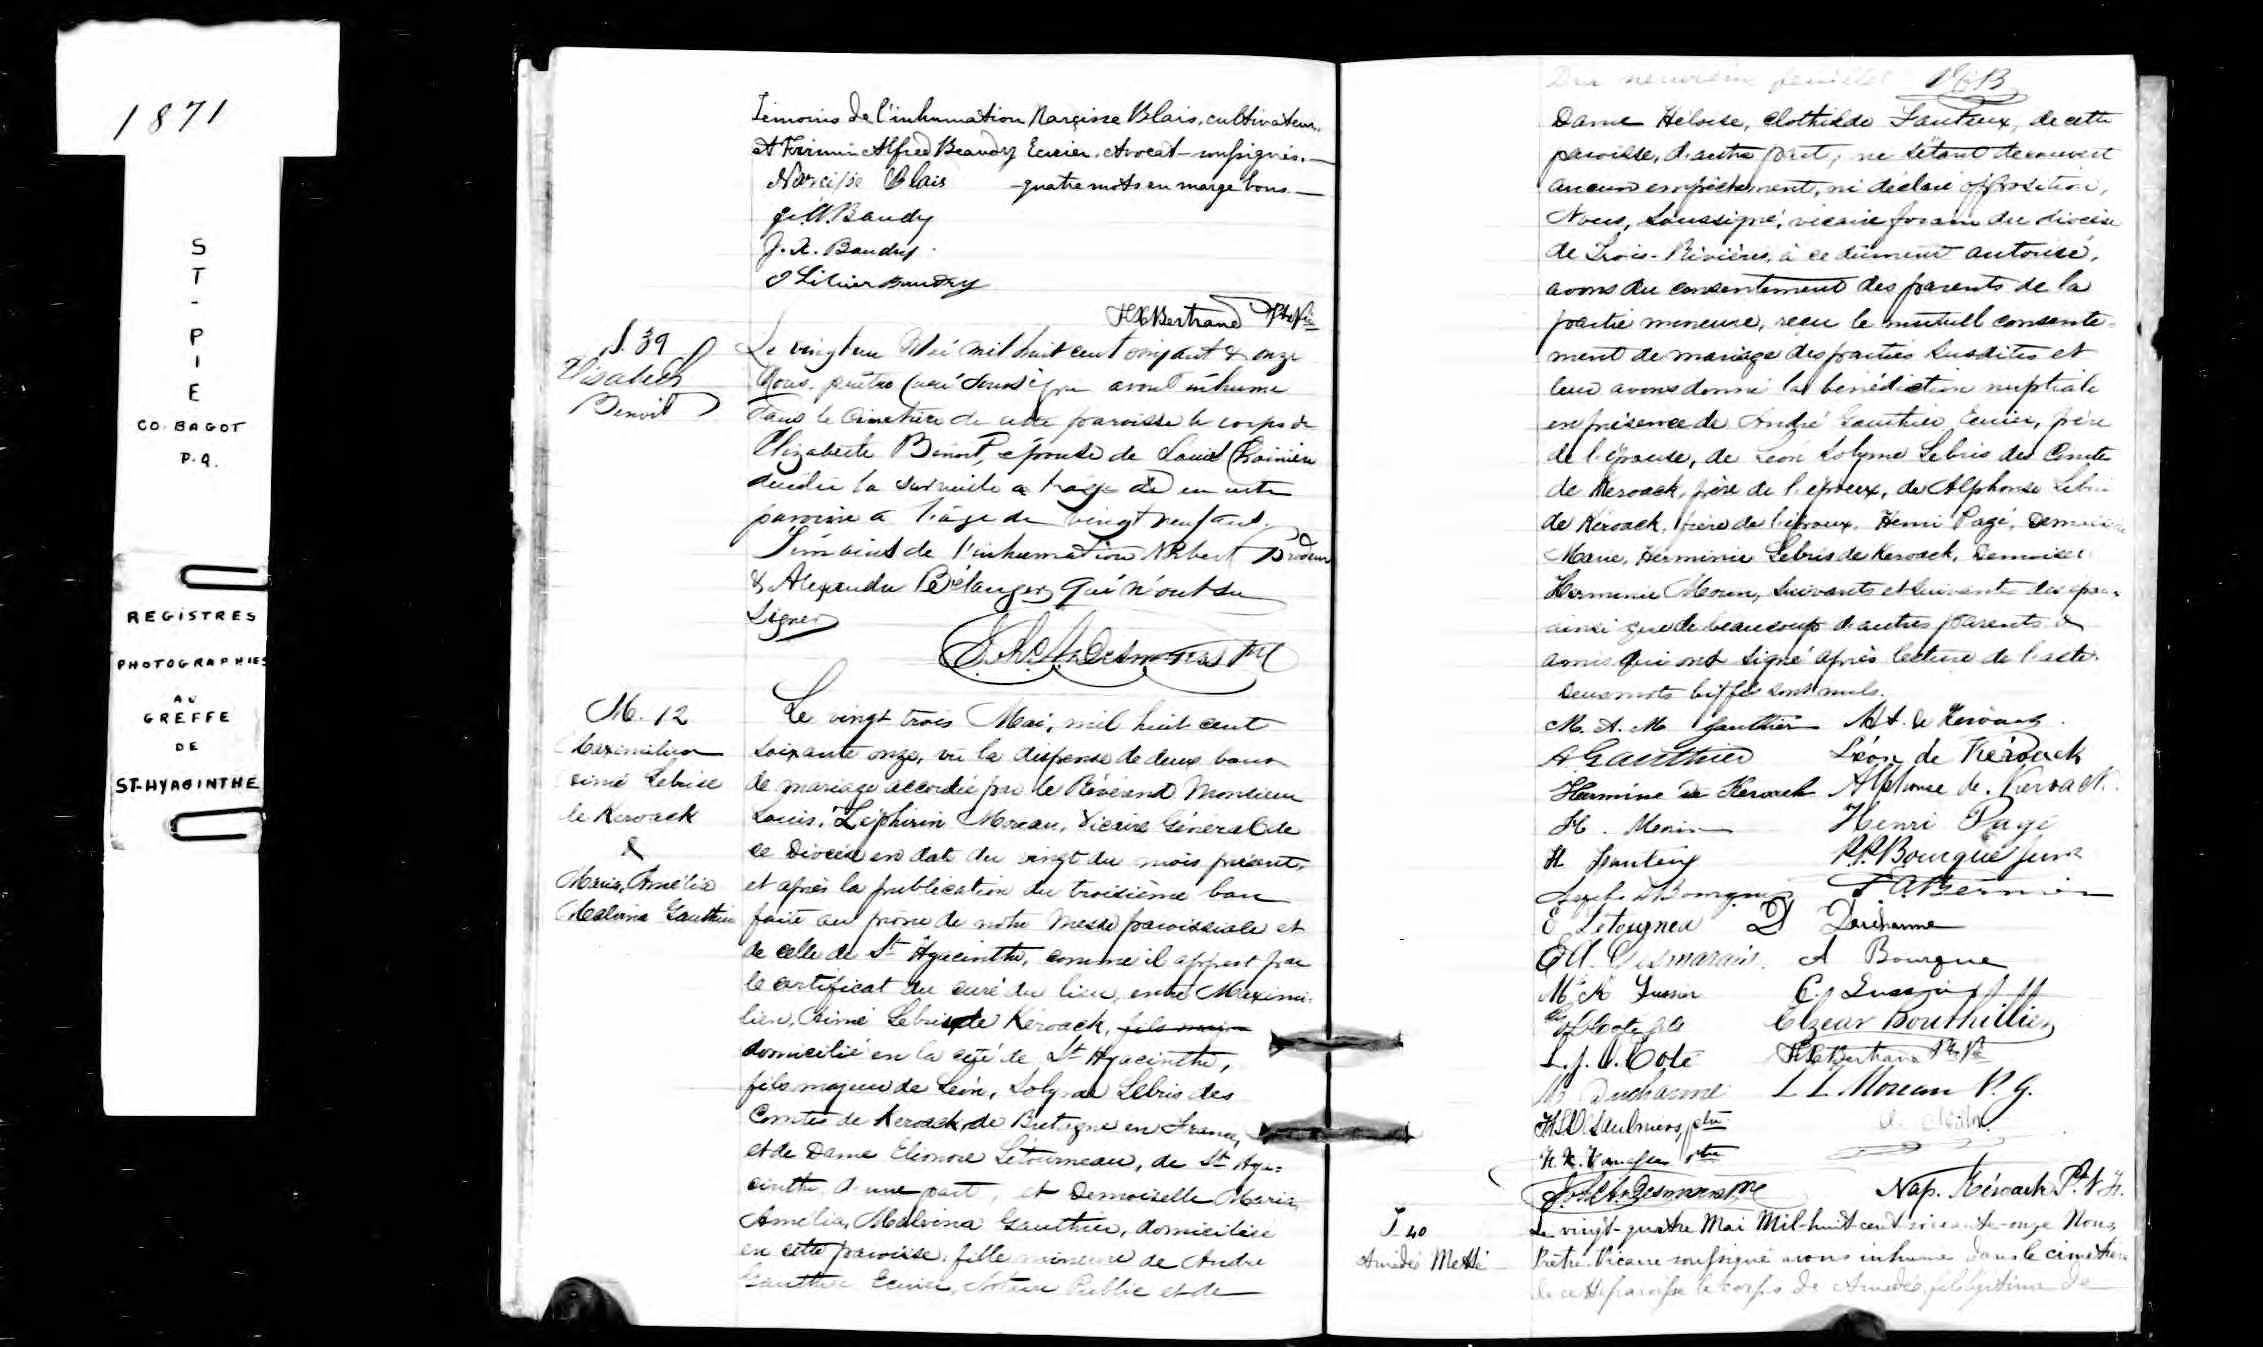 1871
S
T
-
P
I
E
CO. BAGOT
P.Q.
REGISTRES
PHOTOGRAPHIES
AU
GREFFE
DE
ST-HYACINTHE
Témoins de l'inhumation Narcisse Blais, cultivateur,
et Firmin Alfred Beaudry Ecuier, Avocat soussignés.
Narcisse Blais - quatre mots en marge bons.
J. X. Baudry
Olivier Baudry
F X Bertrand Ptre Vic
S. 39
Elisabeth
Benoit
Le vingt un Mai mil huit cent soixant & onze
Nous, prêtre curé soussigné avons inhumé
dans le Cimetière de cette paroisse le corps de
Elizabeth Benoit, épouse de Louis
décédée la surveille en cette
paroisse a l'âge de vingt neuf ans.
Témoins de l'inhumation Norbert Brodeur
& Alexandre Bélanger qui n'ont su
signer
Desnoyers Ptre
M. 12
Maximilien
Aimé Lebrise
de Keroack
&
Marie, Amélie
Malvina Gauthier
Le vingt trois Mai, mil huit cent
soixante onze, vu la dispense de deux bans
de mariage accordée par le Révérend Monsieur
Louis, Zéphirin Moreau, Vicaire Général de
ce Diocèse en date du vingt du mois présent,
et après la publication du troisième ban
faite au prône de notre Messe paroissiale et
de celle de St Hyacinthe, comme il appert par
le certificat du curé du lieu, entre Maximi-
lien, Aimé Lebris de Kéroack, fils maj
domicilié en la cité de St Hyacinthe,
fils majeur de Léon, Solyme Lebris des
Comtes de Keroack, de Bretagne en France,
et de Dame Eléonore Létourneau, de St Hya-
cinthe d'une part, et Demoiselle Marie
Amélia, Malvina Gauthier, domiciliée
en cette paroisse, fille mineure de André
Gauthier Ecuier, Notaire Public et de
Dix neuvième feuillet
Dame Héloise, Clothilde Fauteux, de cette
paroisse, d'autre part; ne s'étant découvert
aucun empêchement, ni déclaré opposition,
Nous, soussigné, vicaire forain du diocèse
de Trois-Rivières, à ce dûment autorisé,
avons du consentement des parents de la
partie mineure, reçu le mutuel consente-
ment de mariage des parties susdites et
leur avons donné la bénédiction nuptiale
en présence de André Gauthier Ecuier, père
de l'épouse, de Léon Solyme Lebris des Comtes
de Keroack, père de l'époux, de Alphonse Lebris
de Kéroack, frère de l'époux, Henri Pagé, Demoiselle
Marie, Herminie Lebris de Keroack, Demoiselle
Herminie Morin, suivants et suivantes des époux
ainsi que de beaucoup d'autres parents &
amis qui ont signé après lecture de l'acte.
Deux mots biffés sont nuls.
M. A. M Gauthier M A. de Kéroack
A Gauthier Léon de Kéroack
Hermine de Kerouack Alphonse de Keroack
H. Morin Henri Pagé
H Fauteux P.P. Bourque Junr
Bourque F A Bernier
E Letourneau D Ducharme
Desmarais A Bourque
Lussier C. Lussier
Coté fils Elzear Bouthillier
L. J. O. Coté F X Bertrand Ptre Vic
M Ducharme L Z Moreau V. G.
Saulniers, ptre
ptre
Desnoyers Ptre Nap. Kéroack Pt. V. F.
S 40
Amédé Messi
Le vingt-quatre Mai Mil-huit cent soixante-onze Nous,
Prêtre Vicaire soussigné avons inhumé dans le cimetière
de cette paroisse le corps de Amédée, fils légitime de